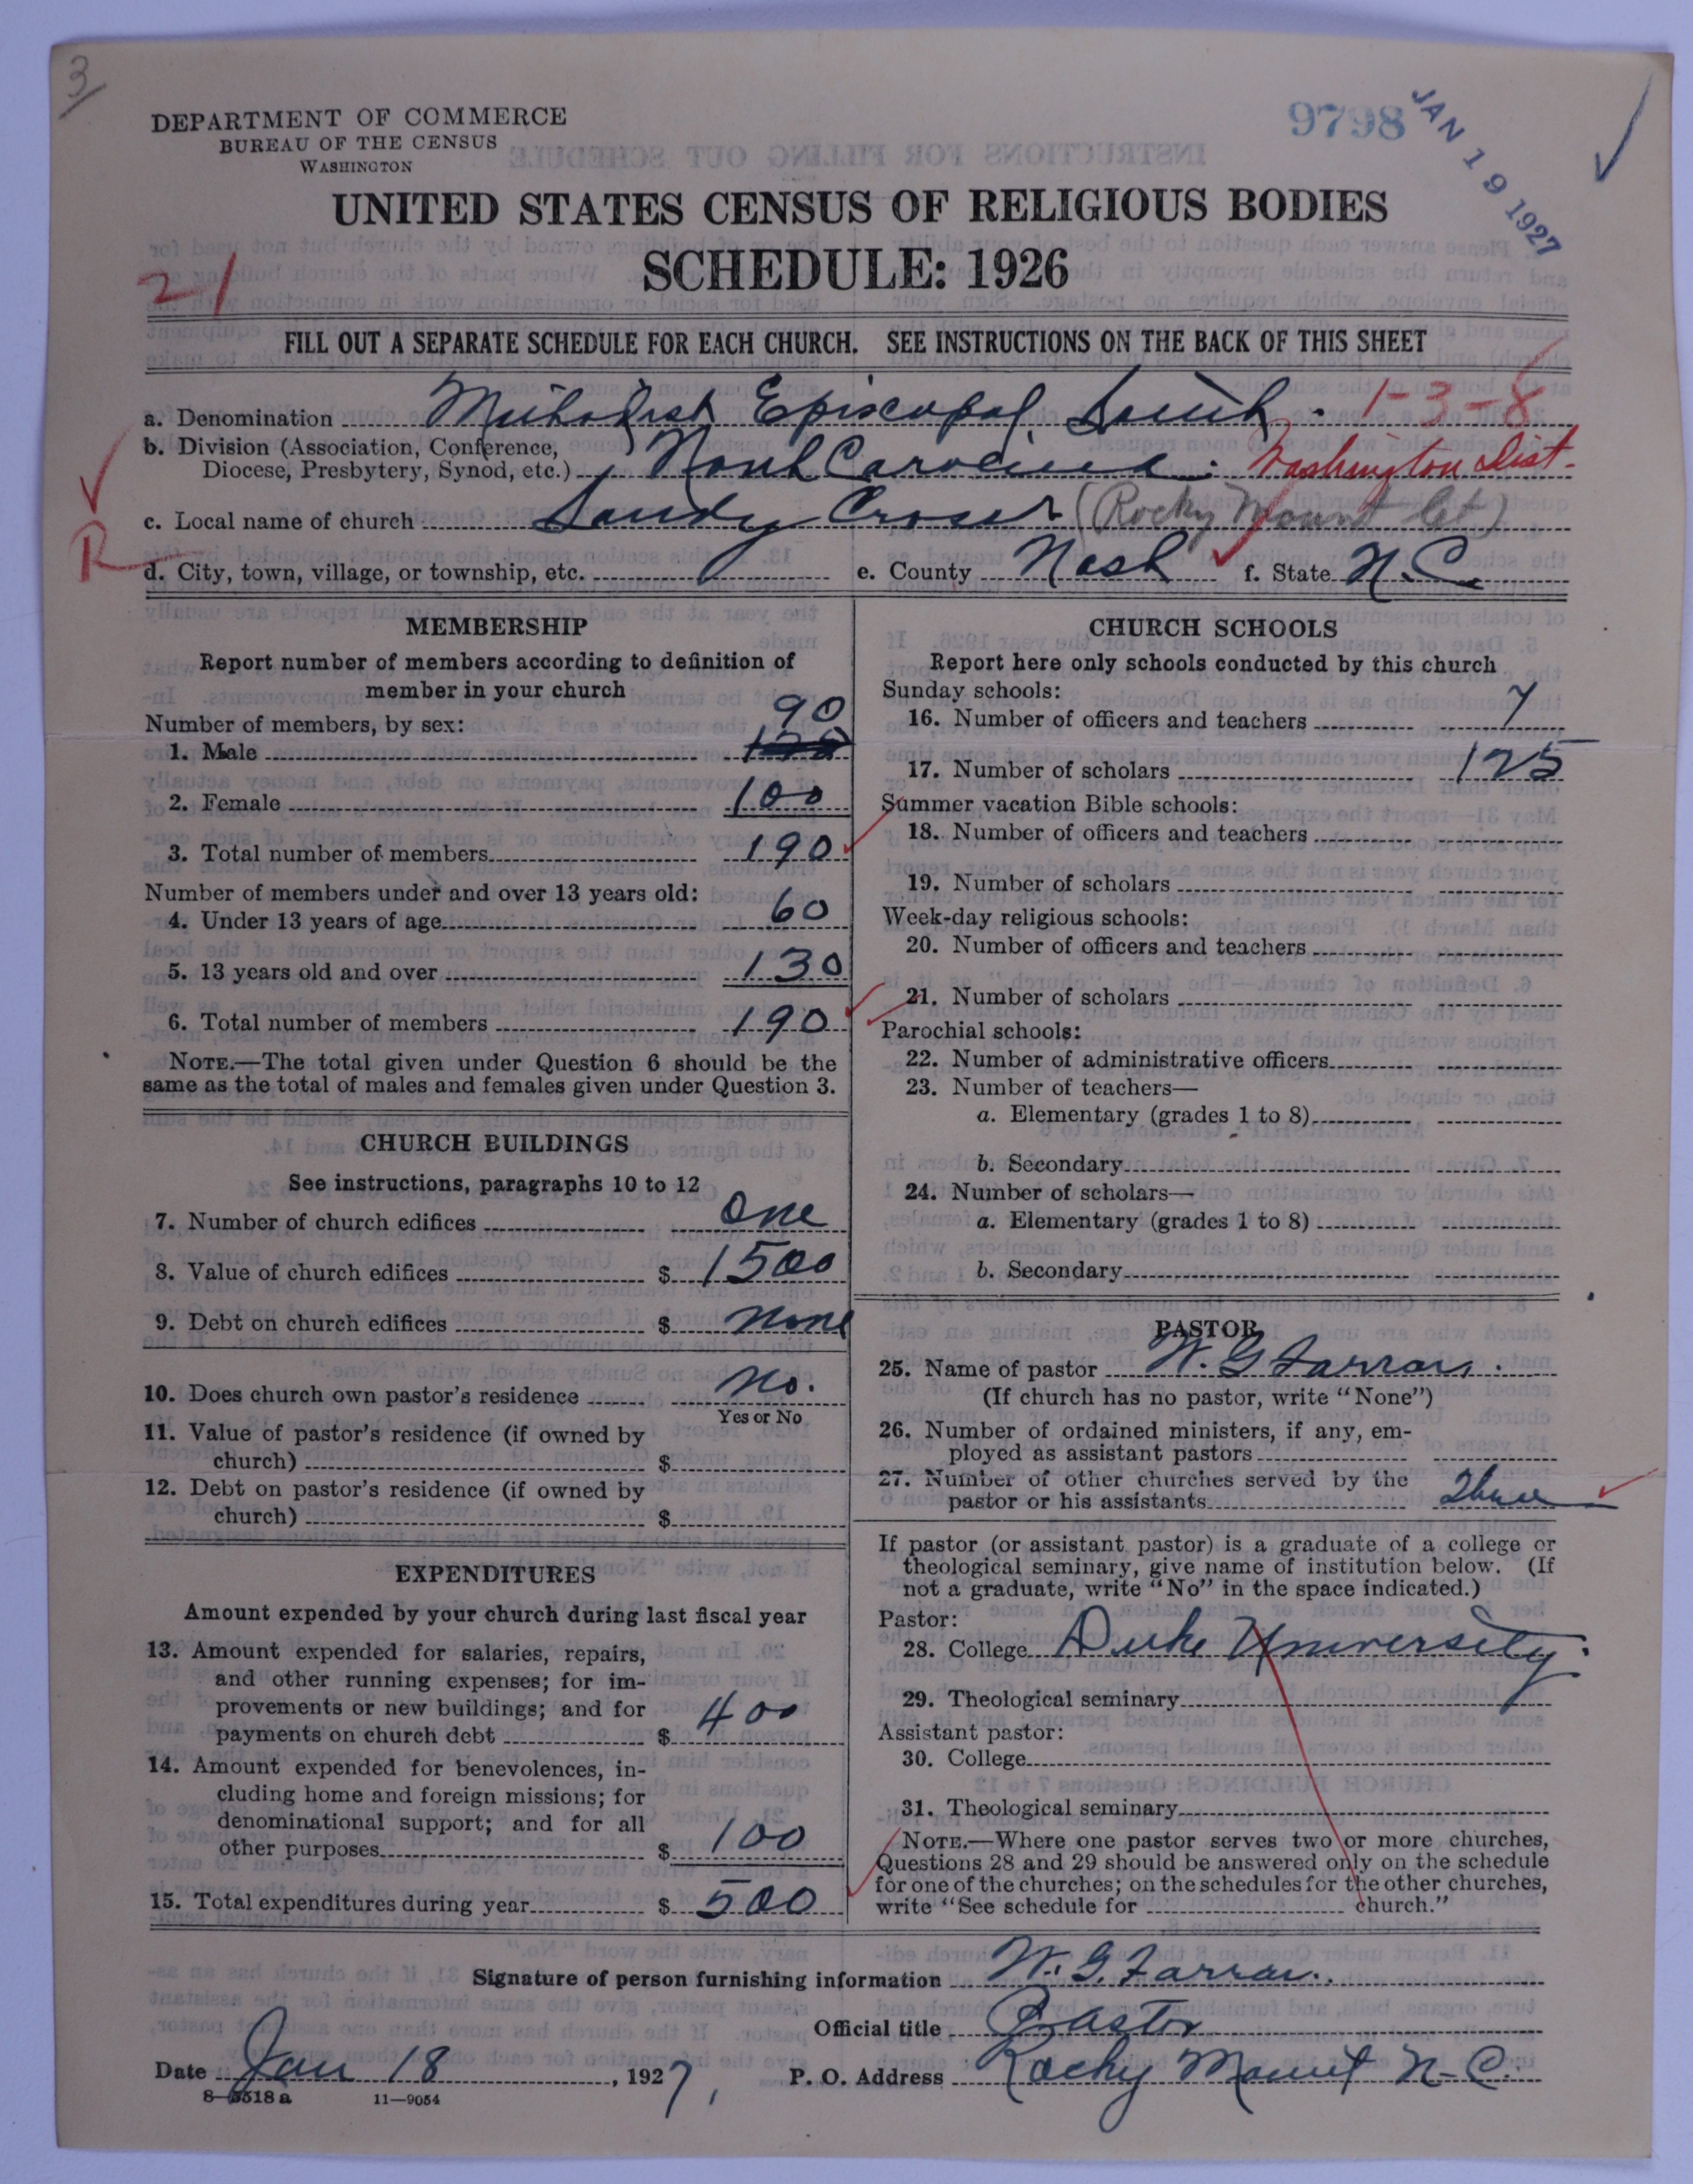 3
DEPARTMENT OF COMMERCE
BUREAU OF THE CENSUS
WASHINGTON
9798
JAN 19 1927
UNITED STATES CENSUS OF RELIGIOUS BODIES
SCHEDULE: 1926
21
FILL OUT A SEPARATE SCHEDULE FOR EACH CHURCH. SEE INSTRUCTIONS ON THE BACK OF THIS SHEET
a. Denomination Methodist Episcopal South. 1-3-8
b. Division (Association, Conference,
Diocese, Presbytery, Synod, etc.) North Carolina. Washington Dist.
c. Local name of church Sandy Cross (Rocky Mount Ct)
R
d. City, town, village, or township, etc. e. County Nash f. State N.C.
MEMBERSHIP
Report number of members according to definition of
member in your church
Number of members, by sex:
90
1. Male
2. Female 100
3. Total number of members 190
Number of members under and over 13 years old:
4. Under 13 years of age 60
5. 13 years old and over 130
6. Total number of members 190
NOTE.—The total given under Question 6 should be the
same as the total of males and females given under Question 3.
CHURCH BUILDINGS
See instructions, paragraphs 10 to 12
7. Number of church edifices One
8. Value of church edifices $ 1500
9. Debt on church edifices $ none
10. Does church own pastor's residence No.
Yes or No
11. Value of pastor's residence (if owned by
church) $
12. Debt on pastor's residence (if owned by
church) $
EXPENDITURES
Amount expended by your church during last fiscal year
13. Amount expended for salaries, repairs,
and other running expenses; for im-
provements or new buildings; and for
payments on church debt $ 400
14. Amount expended for benevolences, in-
cluding home and foreign missions; for
denominational support; and for all
other purposes $ 100
15. Total expenditures during year $ 500
CHURCH SCHOOLS
Report here only schools conducted by this church
Sunday schools:
16. Number of officers and teachers 7
17. Number of scholars 125
Summer vacation Bible schools:
18. Number of officers and teachers
19. Number of scholars
Week-day religious schools:
20. Number of officers and teachers
21. Number of scholars
Parochial schools:
22. Number of administrative officers
23. Number of teachers—
a. Elementary (grades 1 to 8)
b. Secondary
24. Number of scholars—
a. Elementary (grades 1 to 8)
b. Secondary
PASTOR
25. Name of pastor W. G. Farrar.
(If church has no pastor, write "None")
26. Number of ordained ministers, if any, em-
ployed as assistant pastors
27. Number of other churches served by the
pastor or his assistants Three
If pastor (or assistant pastor) is a graduate of a college or
theological seminary, give name of institution below. (If
not a graduate, write "No" in the space indicated.)
Pastor:
28. College Duke University.
29. Theological seminary
Assistant pastor:
30. College
31. Theological seminary
NOTE.—Where one pastor serves two or more churches,
Questions 28 and 29 should be answered only on the schedule
for one of the churches; on the schedules for the other churches,
write "See schedule for church."
Signature of person furnishing information W. G. Farrar.
Official title Pastor
Date Jan 18, 1927, P. O. Address Rocky Mount N.C.
8—5518 a 11—9054